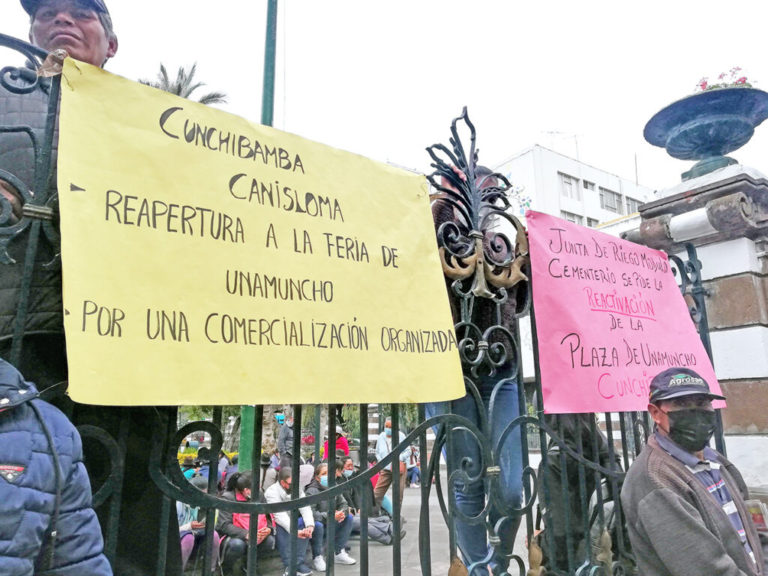 CUNCHIBAMBA
CANISLOMA
- REAPERTURA A LA FERIA DE
UNAMUNCHO
- POR UNA COMERCIALIZACIÓN ORGANIZADA
JUNTA DE RIEGO MODULO
CEMENTERIO SE PIDE LA
REACTIVACIÓN
DE LA
PLAZA DE UNAMUNCHO
CUNCHI